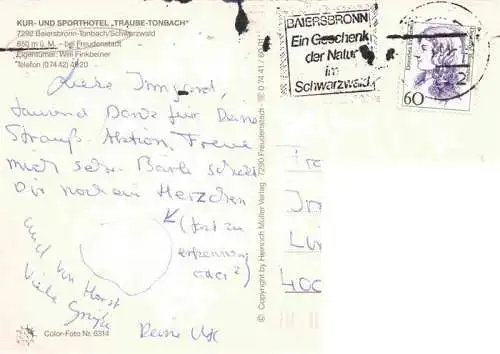 KUR- UND SPORTHOTEL „TRAUBE-TONBACH"
7292 Baiersbronn-Tonbach/Schwarzwald
650 m ü. M. – bei Freudenstadt
Eigentümer: Willi Finkbeiner
Telefon (07442) 4920
Liebe Irmgard,
tausend Dank für Deine
Strauß-Aktion. Freue
mich sehr. Bärli schickt
Dir noch ein Herzchen
(fast zu
erkennen
oder?)
und von Horst
Viele Grüße
Deine
Color-Foto Nr. 6314
© Copyright by Heinrich Müller Verlag · 7290 Freudenstadt ☎ 0 74 41 /
BAIERSBRONN
Ein Geschenk
der Natur
im
Schwarzwald
Deutsche Bundespost
60
Fr
Ir
Lu
400